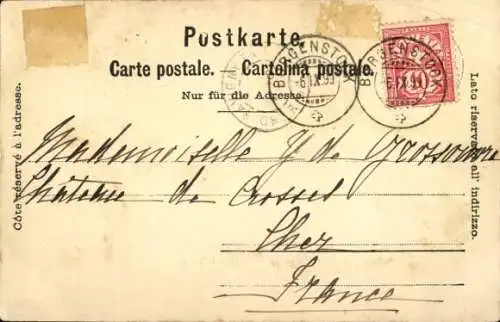 Postkarte.
Carte postale. — Cartolina postale.
Nur für die Adresse.
Côte réservé à l'adresse.
Lato riservato all' indirizzo.
BÜRGENSTOCK
-6.IX.99
BÜRGENSTOCK
IX.99
10
Mademoiselle Y de Grossouvre
Château de Crossel
Cher
France